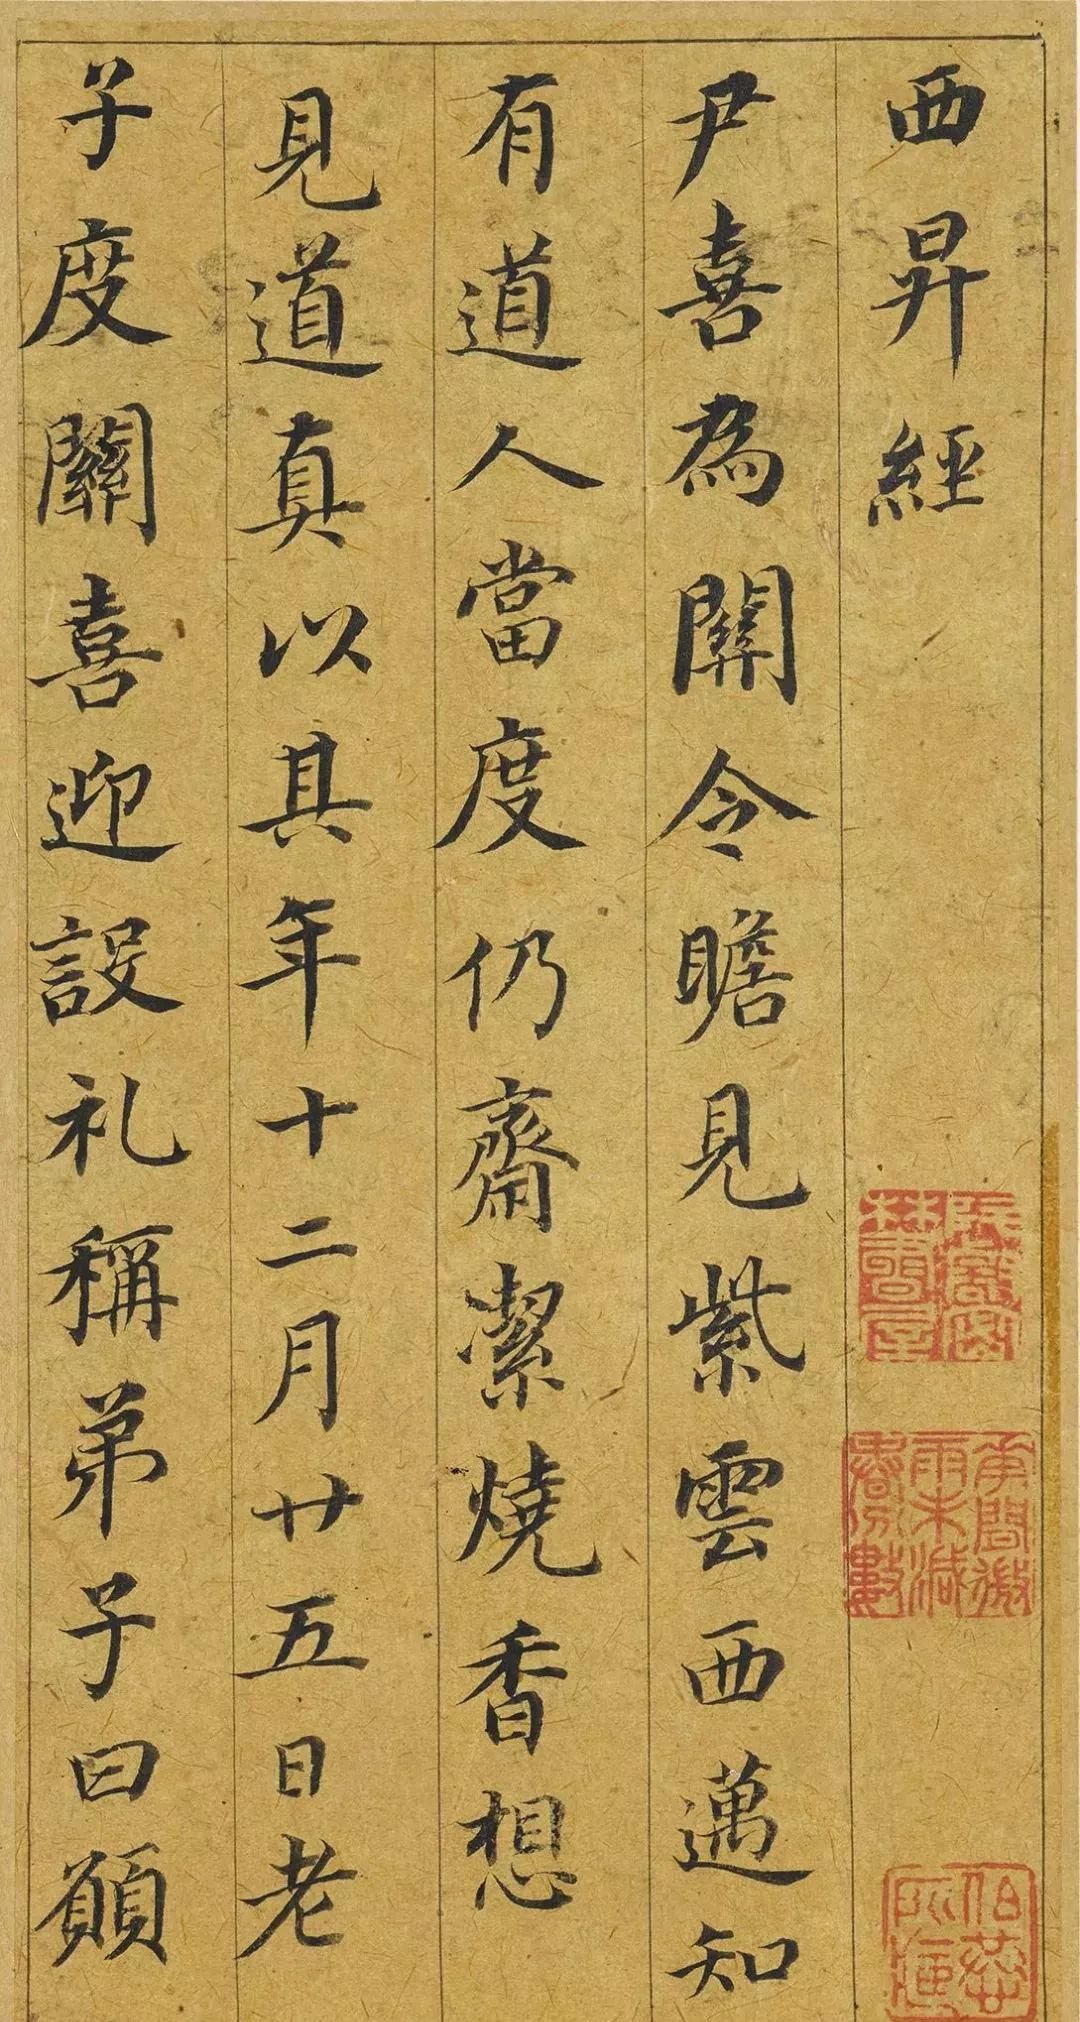 西昇經
尹喜為關令瞻見紫雲西邁知
有道人當度仍齋潔燒香想
見道真以其年十二月廿五日老
子度關喜迎設礼稱弟子曰願